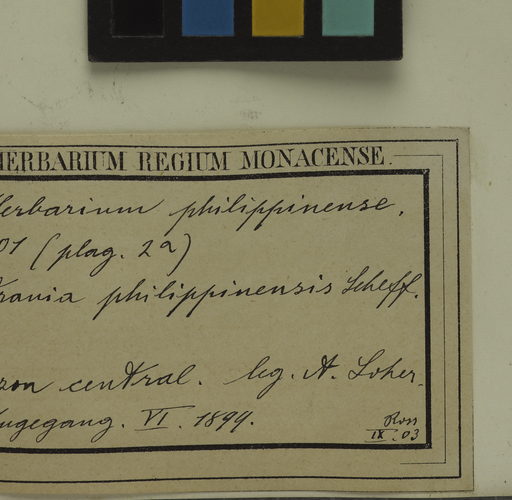 HERBARIUM REGIUM MONACENSE.
Herbarium philippinense.
01 (plag. 2a)
rania philippinensis Scheff.
zon central. leg. A. Loher.
ugegang. VI. 1899.
Ross
IX. 03